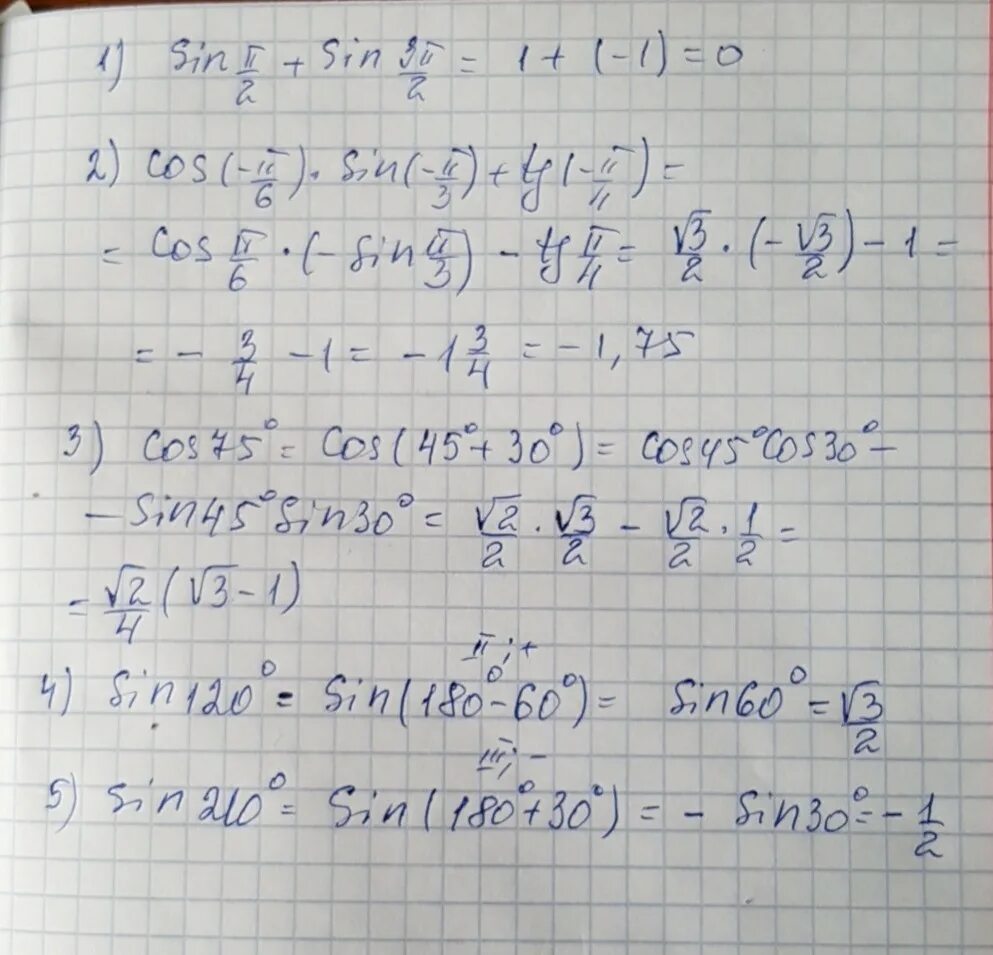 1) sin π/2 + sin 3π/2 = 1 + (-1) = 0
2) cos(-π/6) · sin(-π/3) + tg(-π/4) =
= cos π/6 · (- sin π/3) - tg π/4 = √3/2 · (-√3/2) - 1 =
= - 3/4 - 1 = - 1 3/4 = -1,75
3) cos75° = cos(45° + 30°) = cos45°cos30° -
- sin45°sin30° = √2/2 · √3/2 - √2/2 · 1/2 =
= √2/4 (√3 - 1)
II; +
4) sin120° = sin(180° - 60°) = sin60° = √3/2
III; -
5) sin210° = sin(180° + 30°) = - sin30° = - 1/2